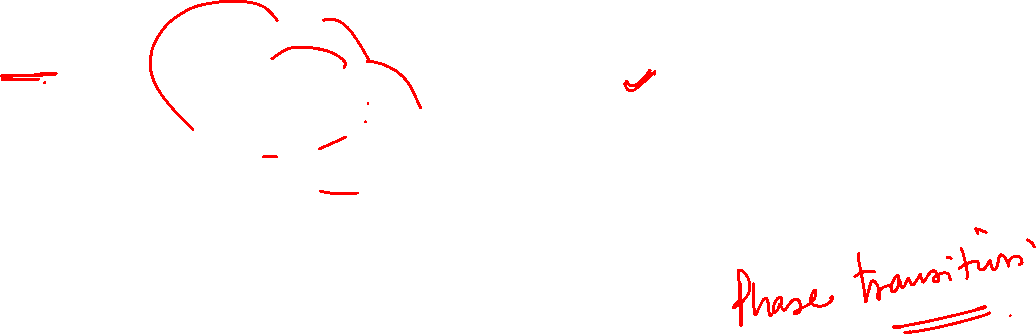 Phase transitions